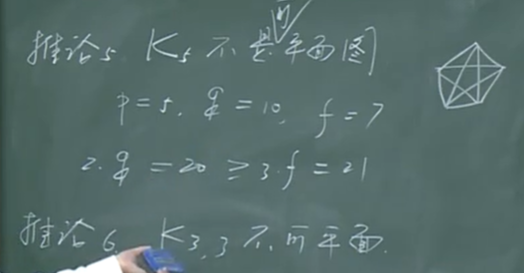 推论5 K5 不是可平面图
p=5, q=10, f=7
2·q=20 ≥ 3·f=21
推论6 K3,3 不可平面.